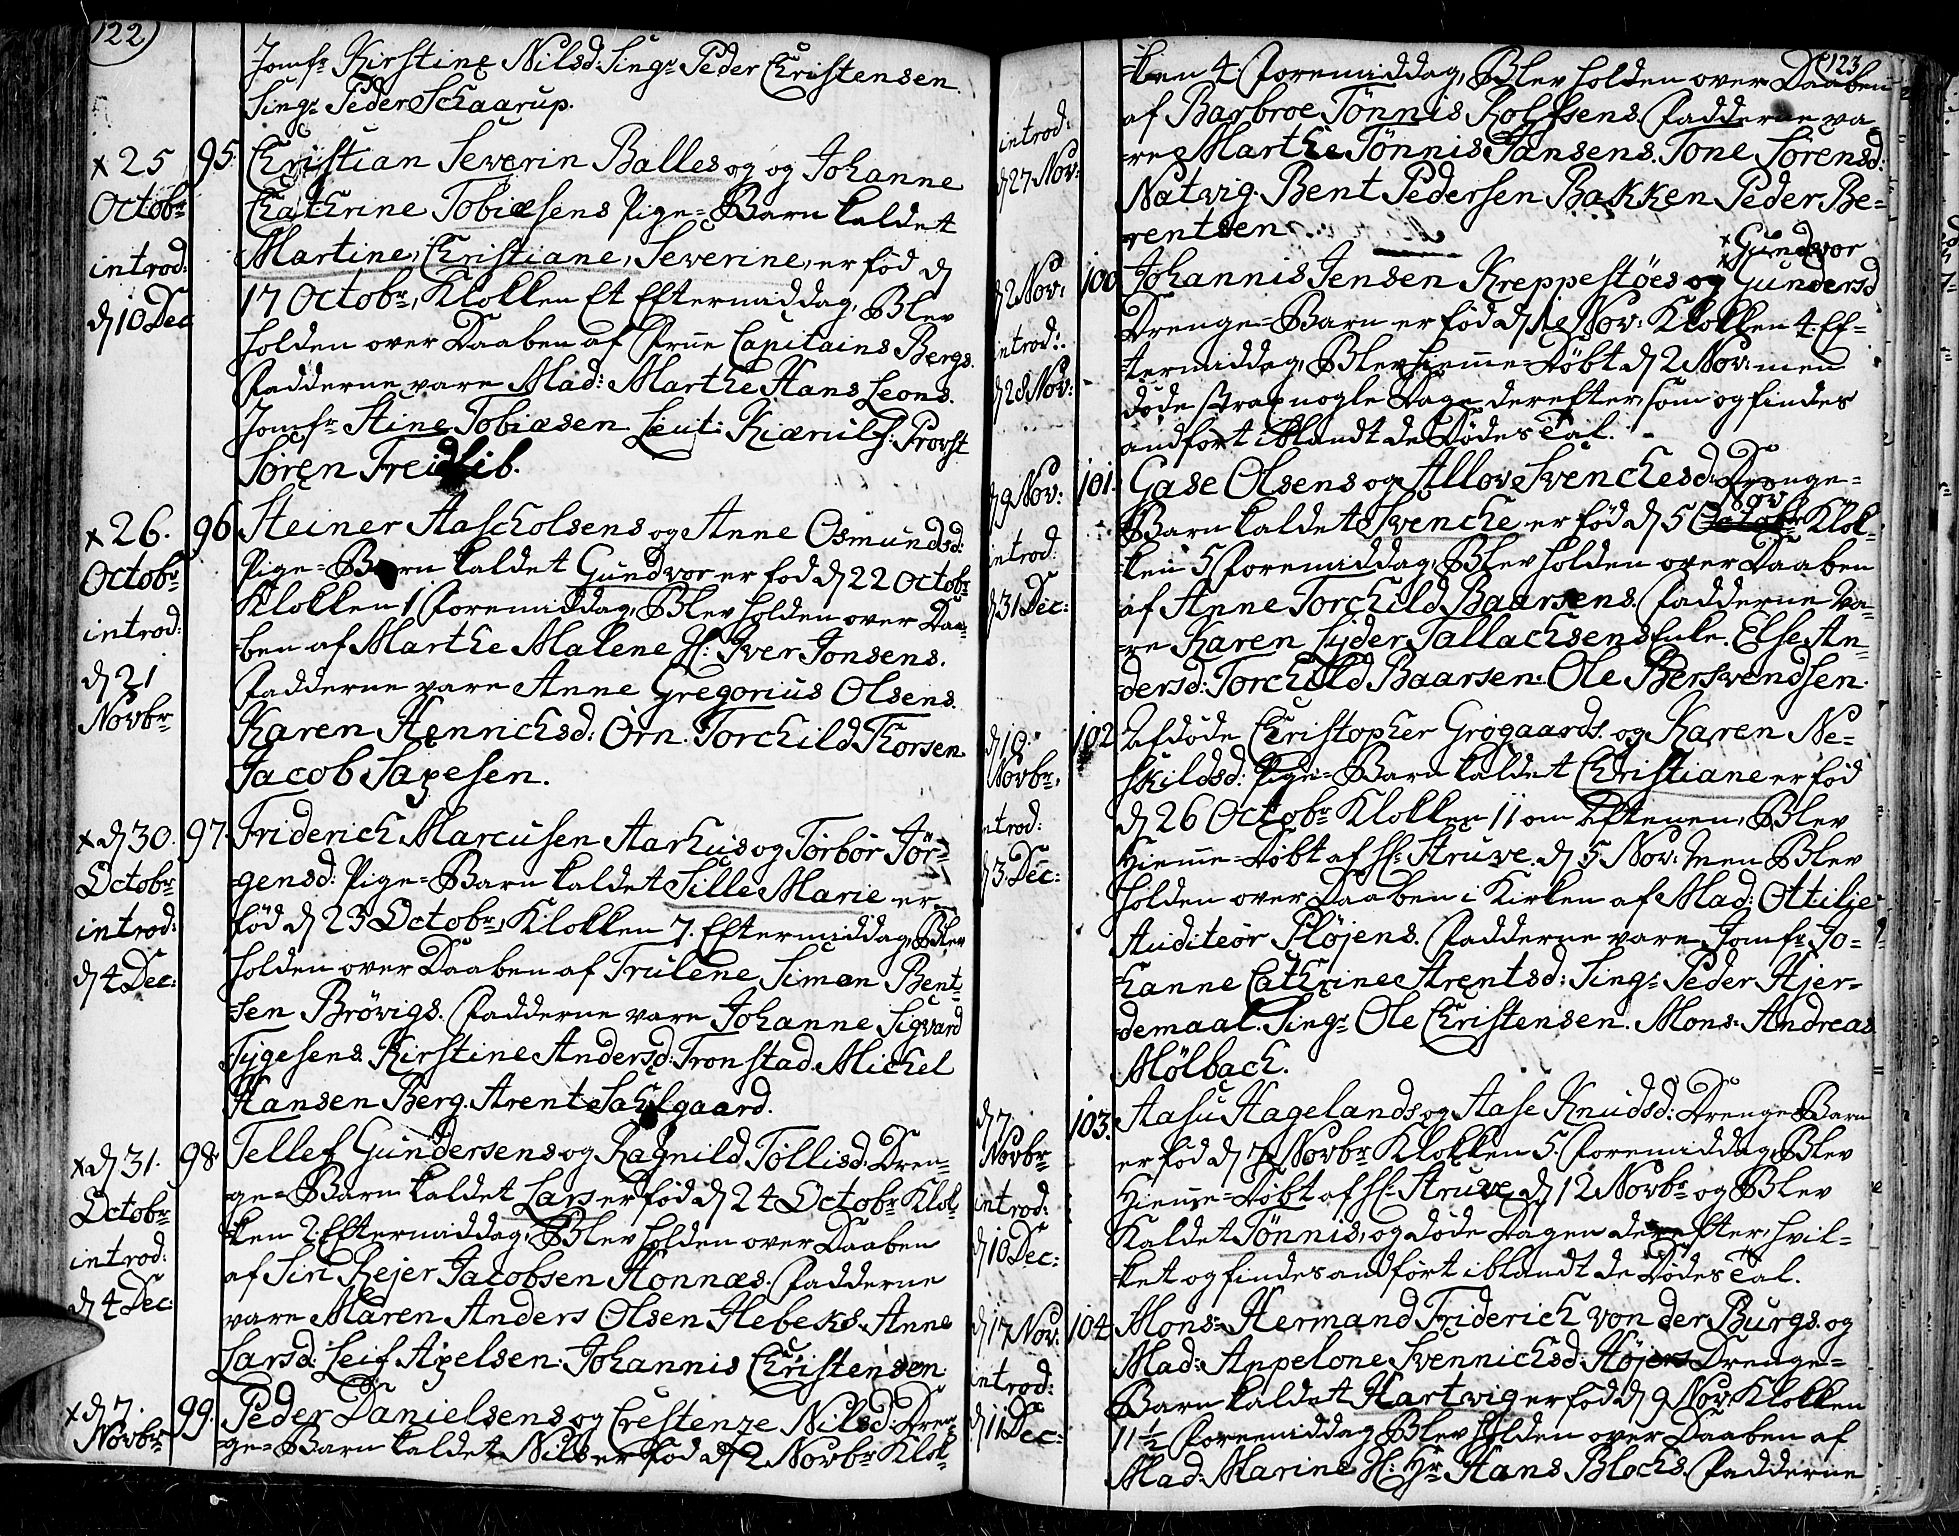 122)
Jomfr Kirstine Nilsd: Singr Peder Christensen
Singr Peder Schaarup.
x 25 Octobr introd: d 10 Dec
95. Christian Severin Balles og og Johanne
Chathrine Tobiæsens Pige-Barn kaldet
Martine, Christiane, Severine, er föd d
17 Octobr, Klokken Et Eftermiddag, Blev
holden over Daaben af Frue Capitains Bergs.
Fadderne vare Mad: Marthe Hans Leons.
Jomfr Stine Tobiæsen Leut: Kiærulf: Provst
Sören Freidlib.
x 26. Octobr introd: d 21 Novbr
96 Steiner Aascholsens og Anne Osmundsd:
Pige-Barn kaldet Gundvor er föd d 22 Octobr
Klokken 1 Foremiddag, Blev holden over Daa-
ben af Marthe Malene H: Iver Jonsens.
Fadderne vare Anne Gregorius Olsens.
Karen Henrichsd: Örn. Torchild Thorsen
Jacob Sapesen.
x d 30. Octobr introd: d 4 Dec:
97. Friderich Marcusen Aarhus og Torbör Jör-
gensd: Pige-Barn kaldet Sille Marie er
föd d 23 Octobr, Klokken 7. Eftermiddag, Blev
holden over Daaben af Trulene Simon Bent-
sen Brövigs. Fadderne vare Johanne Sigvard
Tygesens. Kirstine Andersd: Tronstad. Michel
Hansen Berg. Arent Sahlgaard.
x d 31. Octobr introd: d 4 Dec:
98. Tellef Gundersens og Ragnild Tollisd: Dren-
ge-Barn kaldet Lars er föd d 24 Octobr Klok-
ken 2. Eftermiddag, Blev holden over Daaben
af Siri Rejer Jacobsen Honnæs. Fadderne
vare Maren Anders Olsen Hebeks. Anne
Larsd: Leif Axelsen: Johannis Christensen.
x d 7. Novbr
99. Peder Danielsens og Crestenze Nilsd: Dren-
ge-Barn kaldet Nils er föd d 2 Novbr Klok-
123
ken 4 Foremiddag, Blev holden over Daaben
introd: d 27 Nov:
af Barbroe Tönnis Rolfsens. Fadderne va-
re Marthe Tönnis Hansens. Tone Sörensd:
Natvig. Bent Pedersen Bakken Peder Be-
rentsen.
x Gundvor
d 2 Nov: introd: d 28 Nov:
100 Johannis Jensen Kreppestöes og Gundersd
Drenge-Barn er föd d 1 Nov: Klokken 4. Ef-
termiddag, Blev hiemme-döbt d 2 Nov: men
döde strax nogle Dage derefter, som og findes
andfört iblandt de Dödes Tal.
d 9 Nov: introd: d 31 Dec:
101. Gase Olsens og Allov Svenchesd: Drenge-
Nov
Barn kaldet Svenche er föd d 5 Octobr Klok-
ken 5 Foremiddag, Blev holden over Daaben
af Anne Torchild Baarsens. Fadderne va-
re Karen Syder Tallachsens Enke. Else An-
dersd: Torchild Baarsen. Ole Bersvendsen.
d 10. Novbr, introd: d 3 Dec:
102 Afdöde Christopher Grögaards og Karen Ne-
skildsd: Pige-Barn kaldet Christiane er föd
d 26 Octobr Klokken 11 om Aftenen, Blev
Hiemme-döbt af Hr Struve d 5 Nov: men Blev
holden over Daaben i Kirken af Mad: Ottilje
Auditeör Plöjens. Fadderne vare Jomfr Jo-
hanne Cathrine Arentsd: Singr Peder Hjer-
demaal. Singr Ole Christensen. Mons: Andreas
Mölbach.
d 7. Novbr introd: d 10 Dec:
103. Aasu Hagelands og Aase Knudsd: Drenge-Barn
er föd d 7 Novbr Klokken 5. Foremiddag, Blev
Hiemme-döbt af Hr Struve d 12 Novbr og Blev
Kaldet Tönnis, og döde dagen derefter, hvil-
ket og findes andfört iblandt de Dödes Tal.
d 17 Nov: introd: d 11 Dec:
104 Mons: Hermand Friderich von der Burgs. og
Mad: Anpelone Svennichsd: Höjers Drenge-
Barn kaldet Hartvig er föd d 9 Nov: Klokken
11½ Foremiddag Blev holden over Daaben af
Mad: Marine H: Hr Hans Blochs. Fadderne